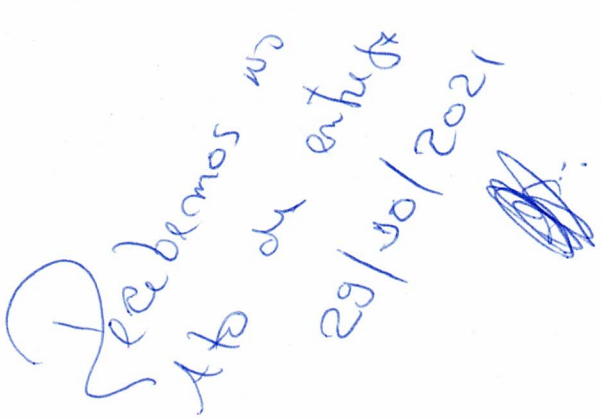 Recebemos no
Ato da entrega
29/10/2021